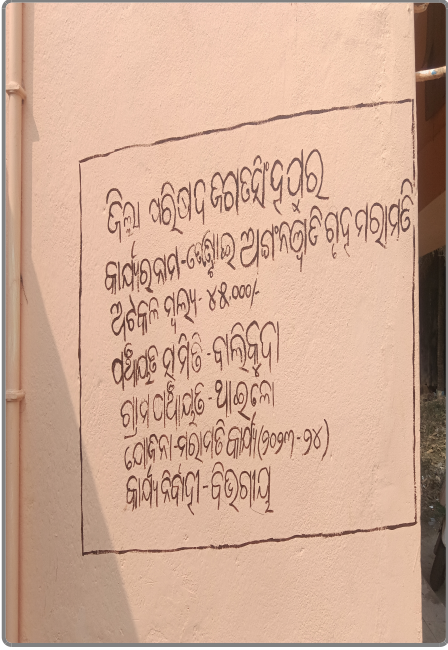 ଜିଲ୍ଲା ପରିଷଦ ଜଗତସିଂହପୁର
କାର୍ଯ୍ୟର ନାମ - ଅଙ୍ଗନୱାଡି ଗୃହ ମରାମତି
ଅଟକଳ ମୂଲ୍ୟ - ୪୫,୦୦୦/-
ପଞ୍ଚାୟତ ସମିତି - ବାଲିକୁଦା
ଗ୍ରାମ ପଞ୍ଚାୟତ - ଆଇଲୋ
ଯୋଜନା - ମରାମତି କାର୍ଯ୍ୟ (୨୦୨୩ - ୨୪)
କାର୍ଯ୍ୟ ନିର୍ବାହୀ - ବିଭଗୀୟ